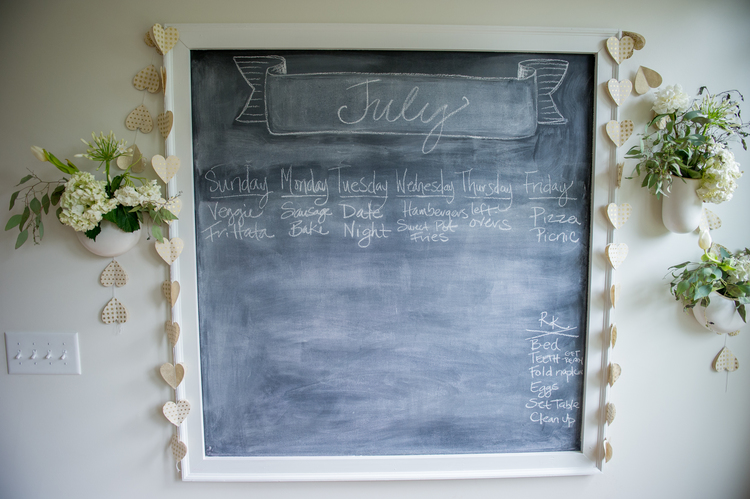 July
Sunday Monday Tuesday Wednesday Thursday Friday
Veggie Sausage Date Hambergers left Pizza
Frittata Bake Night Sweet Pot overs Picnic
Fries
RK
Bed
Teeth GET READY
Fold napkin
Eggs
Set Table
Clean up